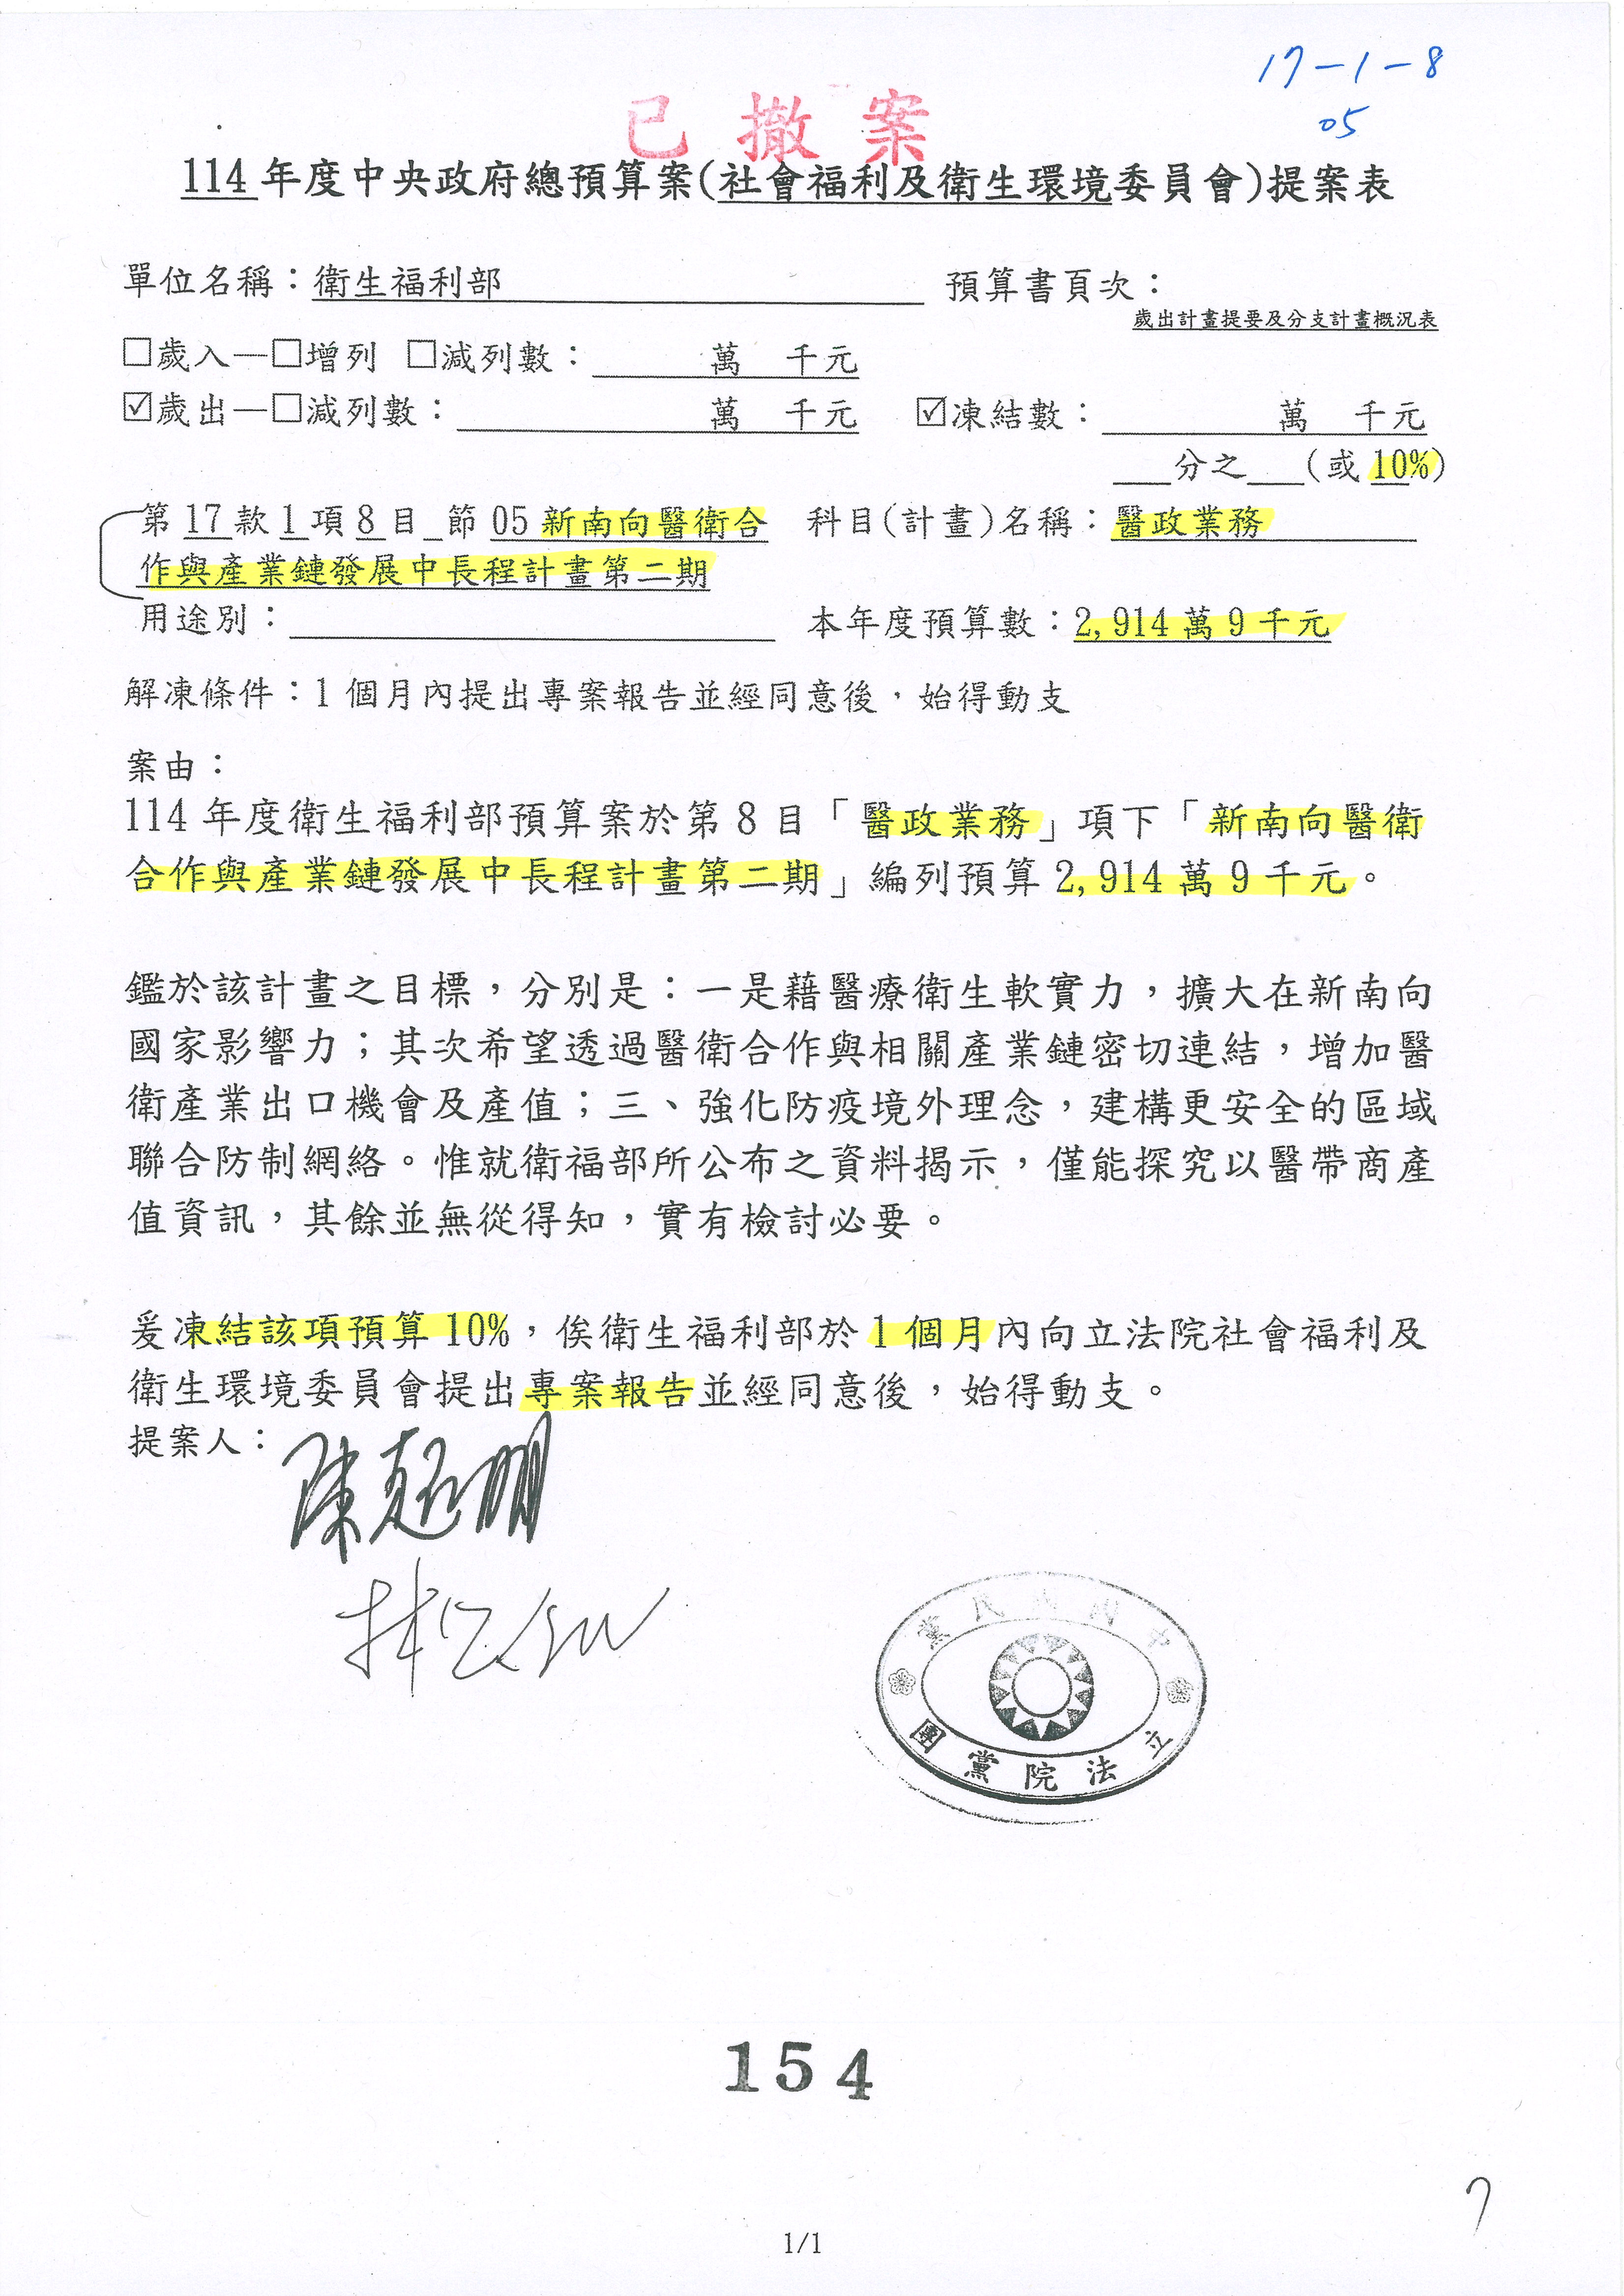 17-1-8
05
已撤案
114年度中央政府總預算案(社會福利及衛生環境委員會)提案表
單位名稱：衛生福利部 預算書頁次：
歲出計畫提要及分支計畫概況表
□歲入—□增列 □減列數： 萬 千元
☑歲出—□減列數： 萬 千元 ☑凍結數： 萬 千元
___分之___(或 10%)
第 17 款 1 項 8 目_節 05 新南向醫衛合 科目(計畫)名稱：醫政業務
作與產業鏈發展中長程計畫第二期
用途別： 本年度預算數：2,914 萬 9 千元
解凍條件：1 個月內提出專案報告並經同意後，始得動支
案由：
114 年度衛生福利部預算案於第 8 目「醫政業務」項下「新南向醫衛
合作與產業鏈發展中長程計畫第二期」編列預算 2,914 萬 9 千元。
鑑於該計畫之目標，分別是：一是藉醫療衛生軟實力，擴大在新南向
國家影響力；其次希望透過醫衛合作與相關產業鏈密切連結，增加醫
衛產業出口機會及產值；三、強化防疫境外理念，建構更安全的區域
聯合防制網絡。惟就衛福部所公布之資料揭示，僅能探究以醫帶商產
值資訊，其餘並無從得知，實有檢討必要。
爰凍結該項預算 10%，俟衛生福利部於 1 個月內向立法院社會福利及
衛生環境委員會提出專案報告並經同意後，始得動支。
提案人：
中國國民黨
立法院黨團
154
7
1/1